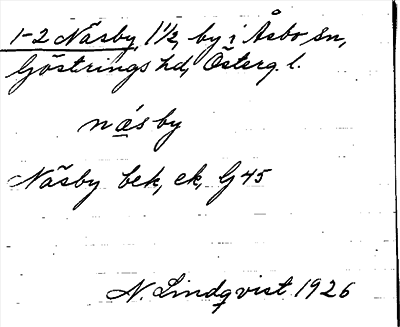 1-2 Näsby, 1 1/2, by i Åsbo sn,
Göstrings hd, Österg. l.
nä́sby
Näsby bek, ek, G 45
N. Lindqvist 1926